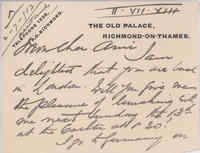 II - VII - XIII
THE OLD PALACE,
RICHMOND-ON-THAMES.
TELEPHONE
RICHMOND.
Mon cher Ami I am
delighted that you are back
in London. Will you give me
the pleasure of lunching with
me next Sunday the 13th
at the Carlton at 1.30.
I go to Germany on